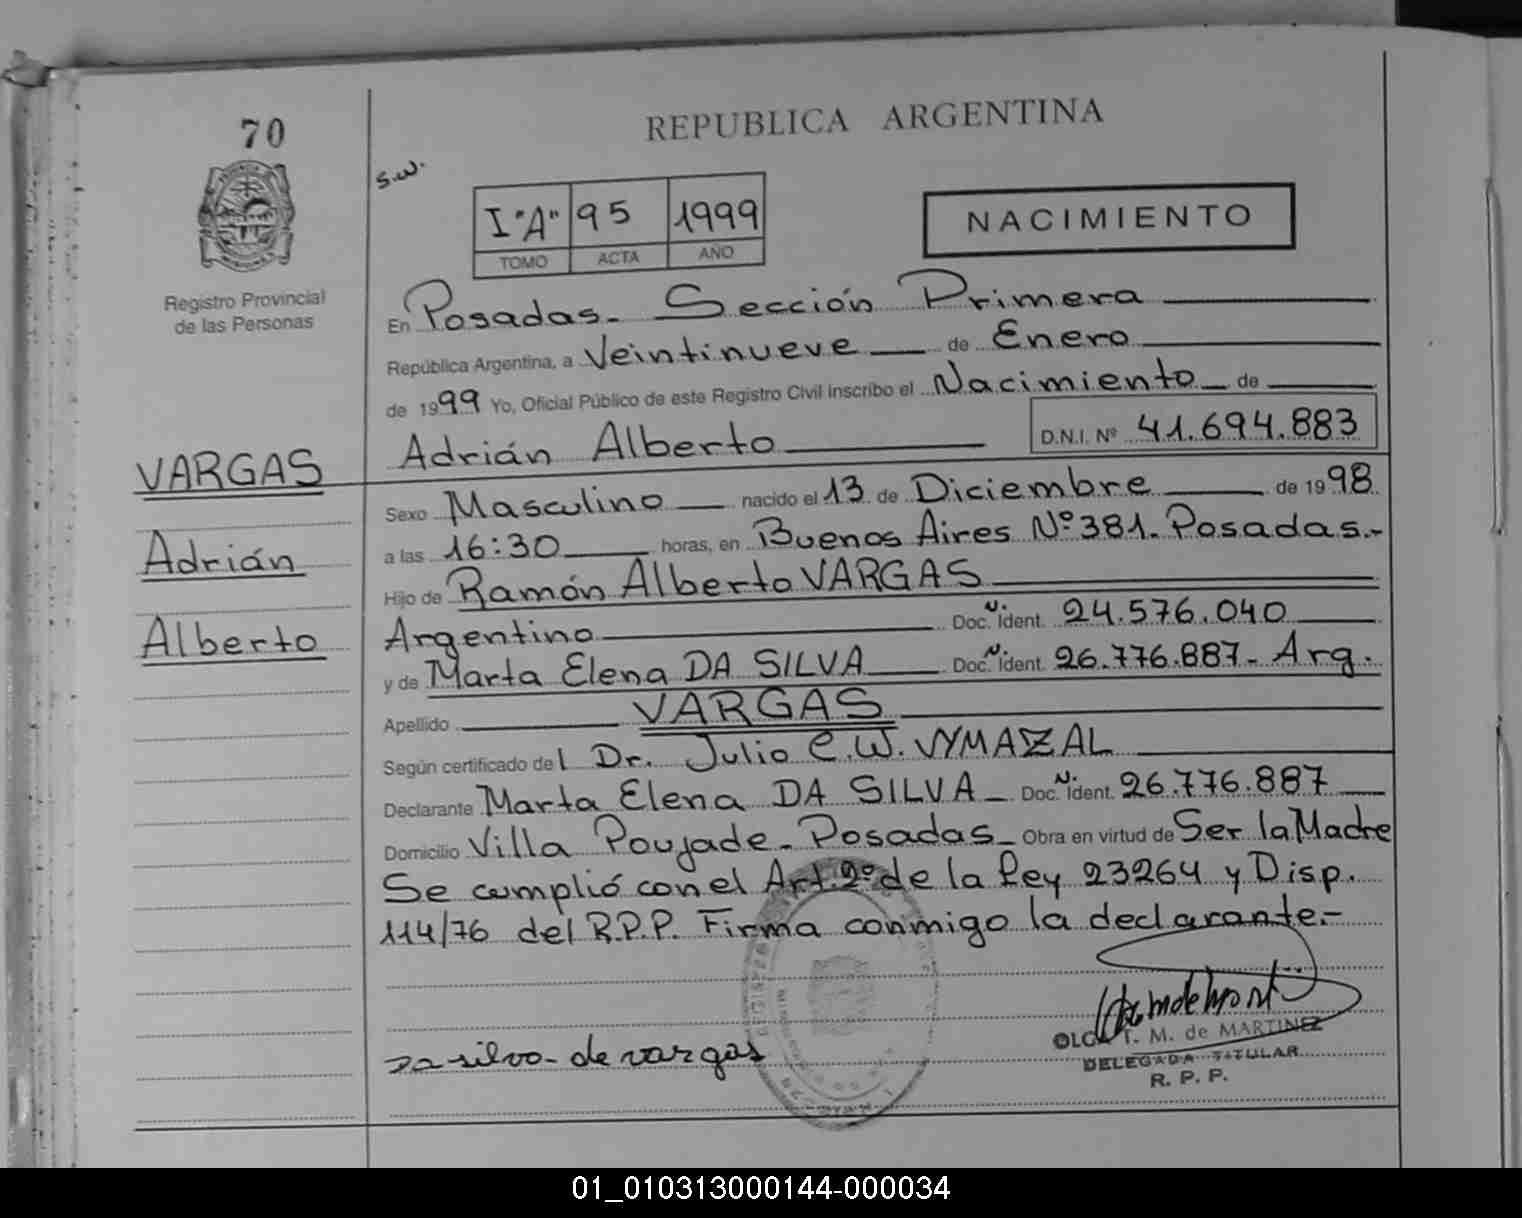 70
REPUBLICA ARGENTINA
s.w.
I "A" 95 1999
TOMO ACTA AÑO
NACIMIENTO
Registro Provincial
de las Personas
En Posadas - Sección Primera
República Argentina, a Veintinueve de Enero
de 1999 Yo, Oficial Público de este Registro Civil inscribo el Nacimiento de
Adrián Alberto D.N.I. Nº 41.694.883
VARGAS
Adrián
Alberto
Sexo Masculino nacido el 13 de Diciembre de 1998
a las 16:30 horas, en Buenos Aires Nº 381. Posadas.-
Hijo de Ramón Alberto VARGAS
Argentino Doc. N. Ident. 24.576.040
y de Marta Elena DA SILVA Doc. N. Ident. 26.776.887- Arg.
Apellido VARGAS
Según certificado del Dr. Julio C.W. VYMAZAL
Declarante Marta Elena DA SILVA Doc. N. Ident. 26.776.887
Domicilio Villa Poujade - Posadas - Obra en virtud de Ser la Madre
Se cumplió con el Art. 2º de la Ley 23264 y Disp.
114/76 del R.P.P. Firma conmigo la declarante.-
Da silva - de vargas
OLGA T. M. de MARTINEZ
DELEGADA TITULAR
R. P. P.
01_010313000144-000034